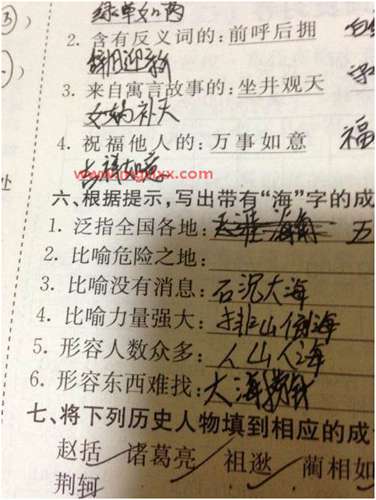 绿草如茵
2. 含有反义词的：前呼后拥
辞旧迎新
3. 来自寓言故事的：坐井观天
女娲补天
4. 祝福他人的：万事如意 福
吉祥如意
六、根据提示，写出带有“海”字的成
1. 泛指全国各地：五
2. 比喻危险之地：
3. 比喻没有消息：石沉大海
4. 比喻力量强大：排山倒海
5. 形容人数众多：人山人海
6. 形容东西难找：大海捞针
七、将下列历史人物填到相应的成
赵括 诸葛亮 祖逖 蔺相如
荆轲